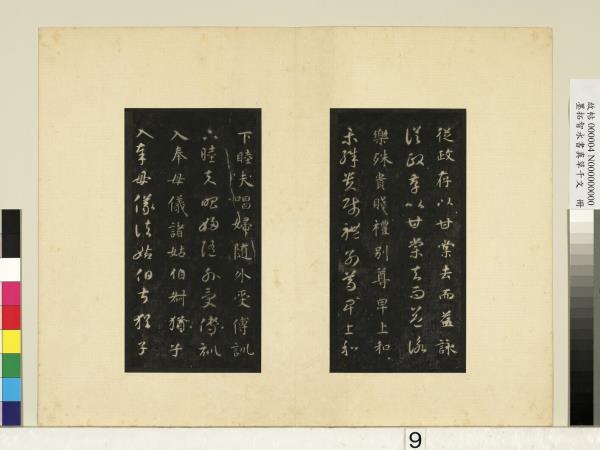 從政存以甘棠去而益詠
從政存以甘棠去而益詠
樂殊貴賤禮別尊卑上和
樂殊貴賤禮別尊卑上和
下睦夫唱婦隨外受傅訓
下睦夫唱婦隨外受傅訓
入奉母儀諸姑伯叔猶子
入奉母儀諸姑伯叔猶子
故帖 000004 N000000000
墨拓智永書真草千文 冊
9